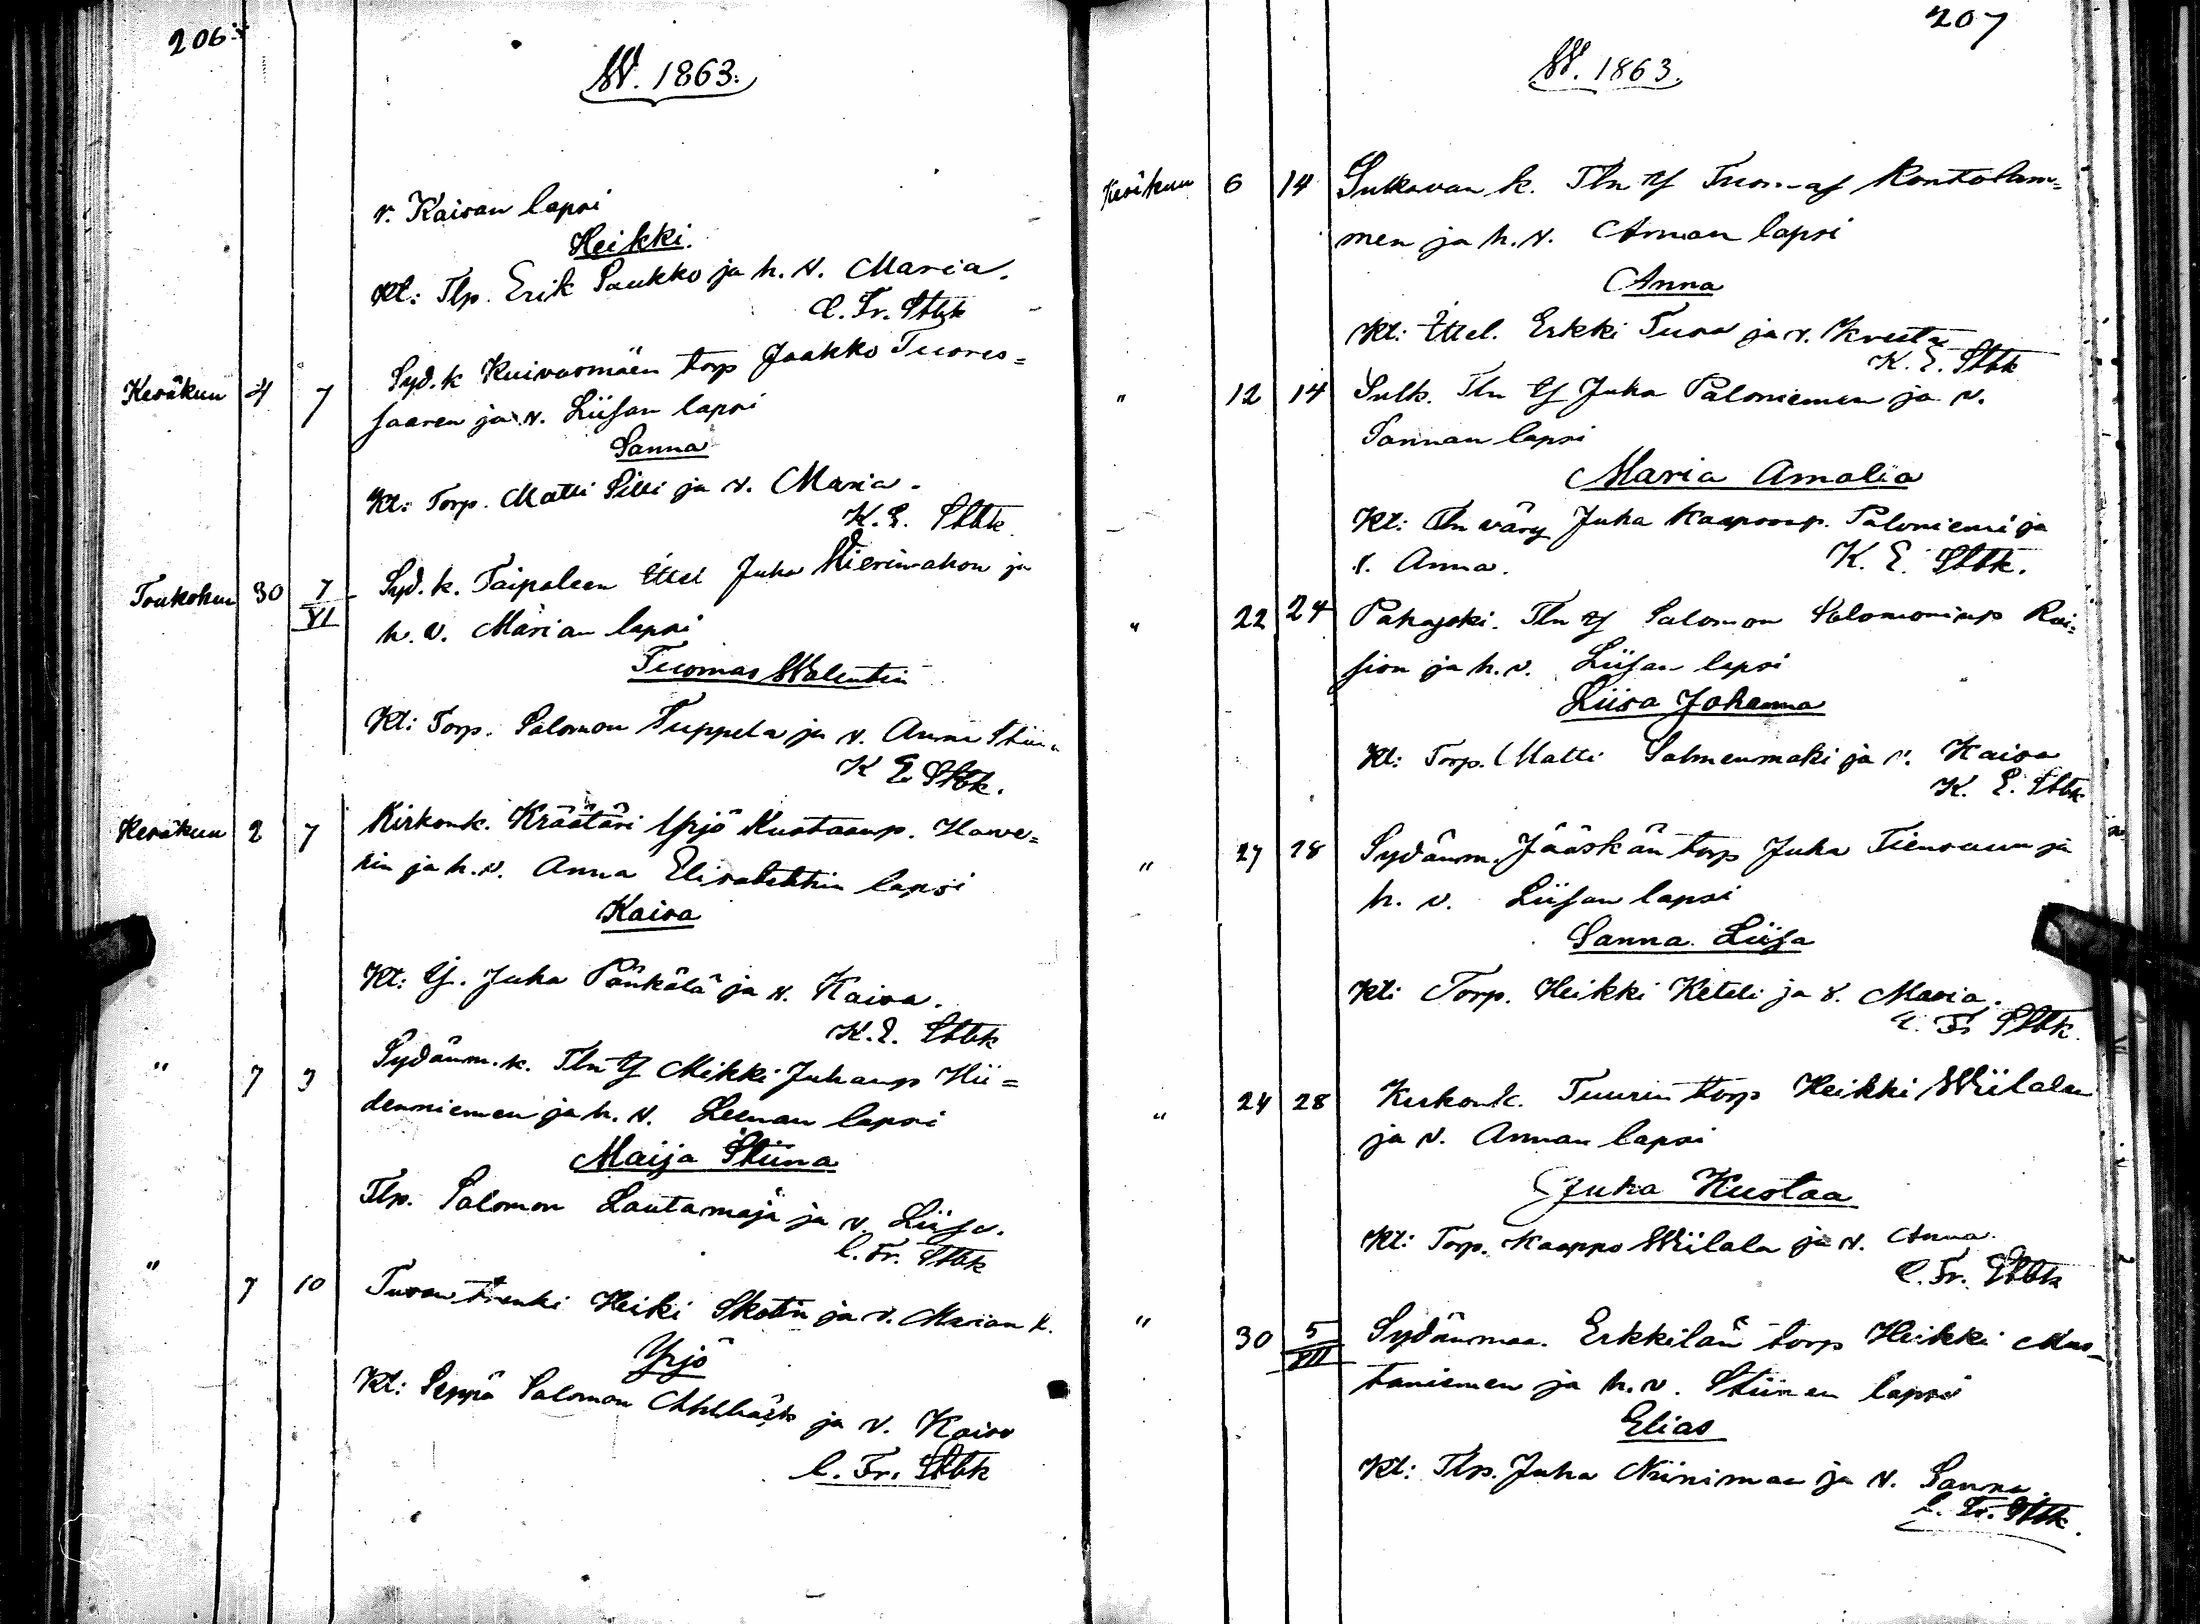 206
W. 1863.
v. Kaisan lapsi
Heikki.
Kt: Tlp. Erik Saukko ja h. v. Maria.
C. Fr. Stbk
Kesäkuu 4 7 Syd. k Kuivasmäen torp Jaakko Tuores=
saaren ja v. Liisan lapsi
Sanna
Kt: Torp. Matti Pilli ja v. Maria.
K. E. Stbk.
Toukokuu 30 7/VI Syd. k. Taipaleen Ittel Juha ja
h. v. Marian lapsi
Tuomas Walentin
Kt: Torp. Salomon Tuppela ja v. Anna Stiina
K E Stbk.
Kesäkuu 2 7 Kirkonk. Kräätäri Yrjö Kustaanp. Hawe=
rin ja h. v. Anna Elisabethin lapsi
Kaisa
Kt: Ij. Juha Pänkälä ja v. Kaisa.
K. E. Stbk
" 7 9 Sydänm. k. Tln Ij Mikki Juhanp Hii=
denniemen ja h. v. Leenan lapsi
Maija Stiina
Tlp. Salomon Lautamaja ja v. Liisa.
C. Fr. Stbk
" 7 10 Turan trenki Heiki Skotin ja v. Marian l.
Yrjö
Kt: Seppä Salomon ja v. Kaisa
C. Fr. Stbk
207
W. 1863.
Kesäkuu 6 14 Sulkavan k. Tln Ij Tuomas Kontolam=
men ja h. v. Annan lapsi
Anna
Kt: Ittel. Erkki Tura ja v. Kreeta
K. E. Stbk
" 12 14 Sulk. Tln Ij Juha Paloniemen ja v.
Sannan lapsi
Maria Amalia
Kt: Tln väry Juha Kaaponp. Paloniemi ja
s. Anna.
K. E. Stbk.
" 22 24 Pahajoki. Tln Ij Salomon Salomoninp Rai=
sion ja h. v. Liisan lapsi
Liisa Johanna
Kt: Torp. Matti Salmenmäki ja v. Kaisa
K. E. Stbk
" 27 28 Sydänm. Jääskän torp Juha Tiensuun ja
h. v. Liisan lapsi
Sanna Liisa
Kt: Torp. Heikki Keteli ja v. Maria.
C. Fr Stbk.
" 24 28 Kirkonk. Tuurin torp Heikki Wiilalan
ja v. Annan lapsi
Juha Kustaa
Kt: Torp. Kaappo Wiilala ja v. Anna.
C. Fr. Stbk
" 30 5/VII Sydänmaa. Erkkilän torp Heikki Mus=
taniemen ja h. v. Stiinan lapsi
Elias
Kt: Tlp. Juha Niinimaa ja v. Sanna.
C. Fr. Stbk.